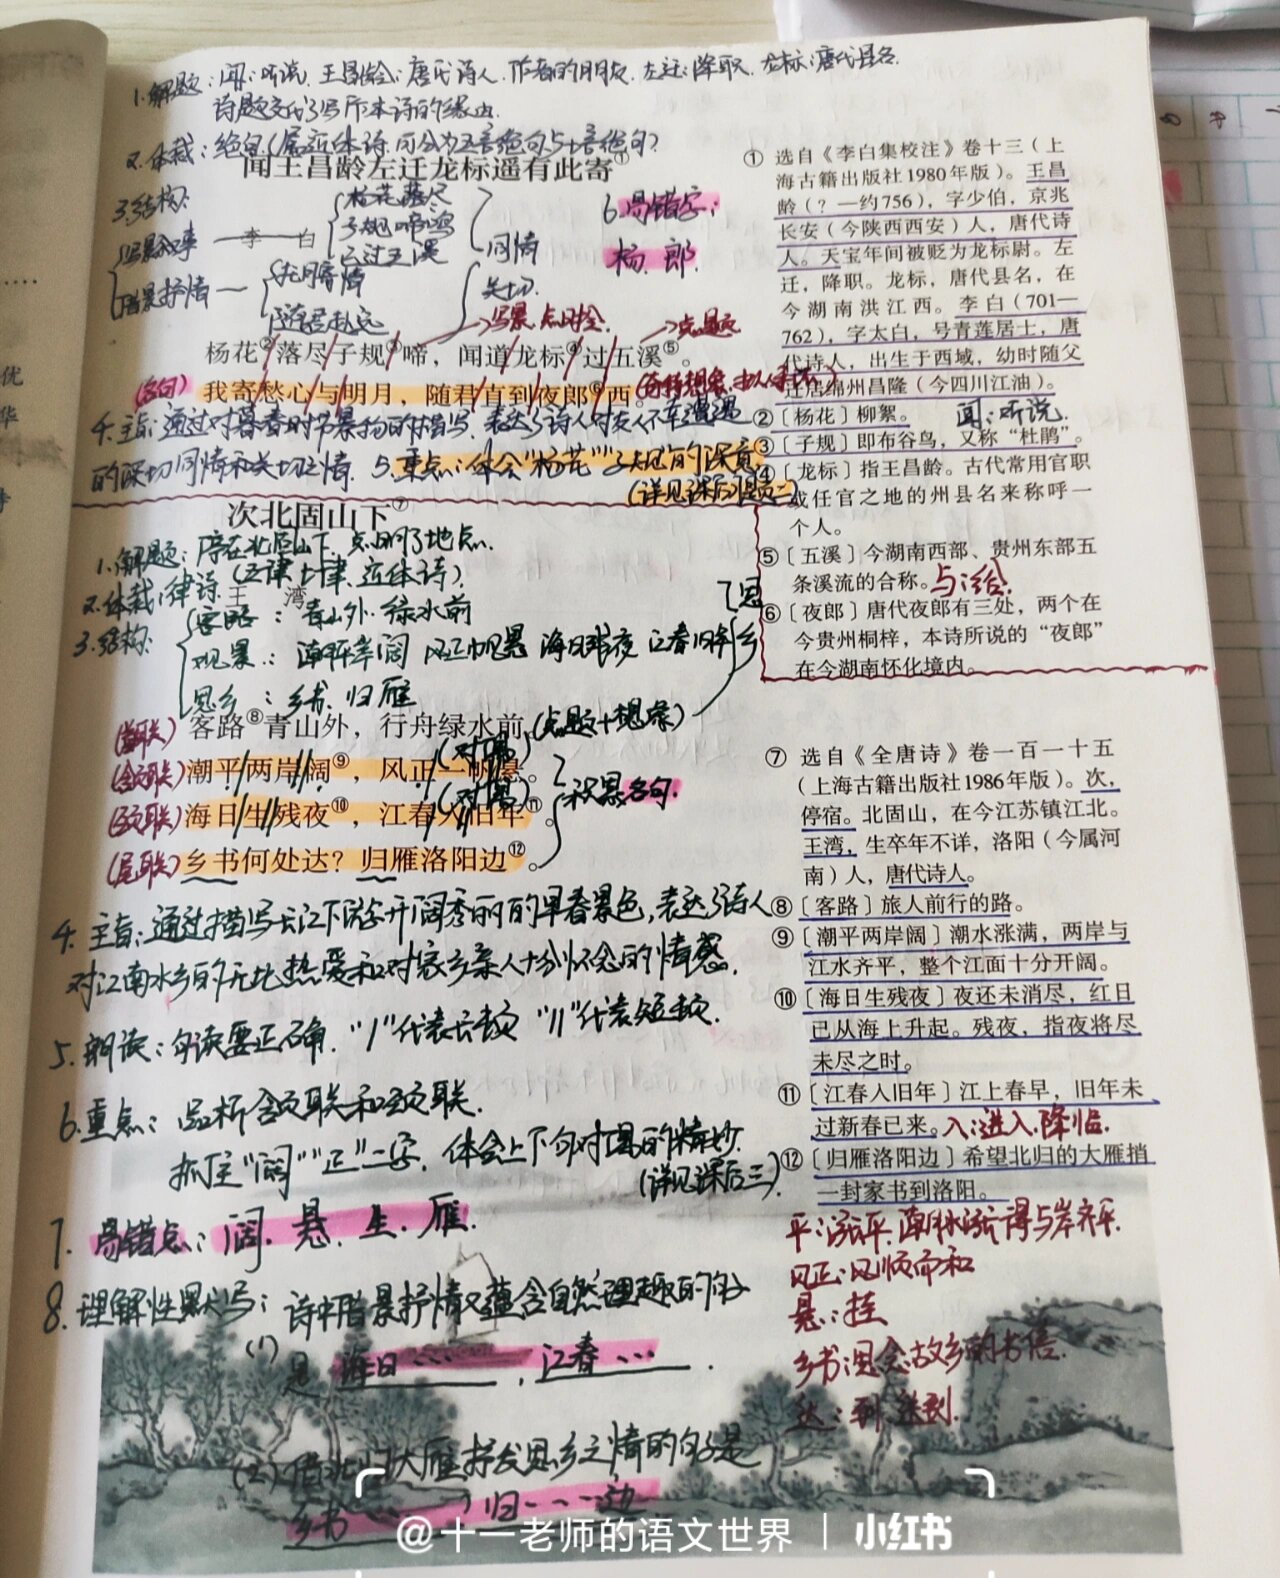 1.解题：闻：听说. 王昌龄：唐代诗人. 作者的朋友. 左迁：降职. 龙标：唐代县名.
诗题交代了写作本诗的缘由.
2.体裁：绝句(属近体诗.可分为五言绝句与七言绝句)
闻王昌龄左迁龙标遥有此寄①
3.结构:
写景叙事
李 白
杨花落尽
子规啼鸣
已过五溪
同情
借景抒情
托月寄情
随君赴远
关切.
6.易错字:
杨 郎
写景.点时令.
点题
杨花②落尽子规③啼，闻道龙标④过五溪⑤。
(名句) 我寄愁心与明月，随君直到夜郎⑥西。
4.主旨:通过对暮春时节景物的描写.表达了诗人对友人不幸遭遇
的深切同情和关切之情. 5.重点:体会"杨花""子规"的深意
(详见课后习题二)
次北固山下⑦
1.解题:停在北固山下.点明了地点.
2.体裁:律诗.(五律七律.近体诗).
王 湾
3.结构:
客路：青山外.绿水前
观景.：潮平岸阔 风正帆悬 海日残夜 江春旧年
思乡：乡书.归雁
思
乡
(首联) 客路⑧青山外，行舟绿水前。(点题+想象)
(对偶)
(颔联) 潮平两岸阔⑨，风正一帆悬。
(对偶)
写景名句.
(颈联) 海日生残夜⑩，江春入旧年⑪。
(尾联) 乡书何处达？归雁洛阳边⑫。
4.主旨:通过描写长江下游开阔秀丽的早春景色,表达了诗人
对江南水乡的无比热爱和对家乡亲人十分怀念的情感.
5.朗读：句读要正确. "/"代表长顿 "//"代表短顿.
6.重点：品析颔联和颈联.
抓住"阔""正"二字. 体会上下句对偶的精妙.
(详见课后三)
7.易错点：阔. 悬. 生. 雁.
8.理解性默写：诗中借景抒情又蕴含自然理趣的句子
(1)
是 海日… , 江春… .
(2)借北归大雁抒发思乡之情的句子是
乡书 归----边
① 选自《李白集校注》卷十三（上
海古籍出版社1980年版）。王昌
龄（？—约756），字少伯，京兆
长安（今陕西西安）人，唐代诗
人。天宝年间被贬为龙标尉。左
迁，降职。龙标，唐代县名，在
今湖南洪江西。李白（701—
762），字太白，号青莲居士，唐
代诗人，出生于西域，幼时随父
迁居绵州昌隆（今四川江油）。
②〔杨花〕柳絮。 闻：听说.
③〔子规〕即布谷鸟，又称“杜鹃”。
④〔龙标〕指王昌龄。古代常用官职
或任官之地的州县名来称呼一
个人。
⑤〔五溪〕今湖南西部、贵州东部五
条溪流的合称。与：给.
⑥〔夜郎〕唐代夜郎有三处，两个在
今贵州桐梓，本诗所说的“夜郎”
在今湖南怀化境内。
⑦ 选自《全唐诗》卷一百一十五
（上海古籍出版社1986年版）。次，
停宿。北固山，在今江苏镇江北。
王湾，生卒年不详，洛阳（今属河
南）人，唐代诗人。
⑧〔客路〕旅人前行的路。
⑨〔潮平两岸阔〕潮水涨满，两岸与
江水齐平，整个江面十分开阔。
⑩〔海日生残夜〕夜还未消尽，红日
已从海上升起。残夜，指夜将尽
未尽之时。
⑪〔江春入旧年〕江上春早，旧年未
过新春已来。入：进入.降临.
⑫〔归雁洛阳边〕希望北归的大雁捎
一封家书到洛阳。
平：涨平.潮水涨得与岸齐平.
风正：风顺而和
悬：挂
乡书:思念故乡的书信.
达：到.送到.
@十一老师的语文世界 | 小红书